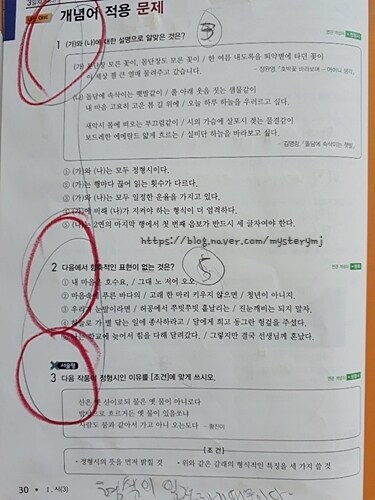 개념어 적용 문제
1 (가)와 (나)에 대한 설명으로 알맞은 것은?
3
(가) 봉선장 모든 꽃이, 봄단장도 모른 꽃이 / 한 여름 내도록을 뙤약볕에 타던 꽃이
이 세상 젤 큰 열매 물려주고 갔습니다.
(나) 돌담에 속삭이는 햇발같이 / 풀 아래 웃음 짓는 샘물같이
내 마음 고요히 고운 봄 길 위에 / 오늘 하루 하늘을 우러르고 싶다.
새악시 볼에 떠오는 부끄럼같이 / 시의 가슴에 살포시 젖는 물결같이
보드레한 에메랄드 얇게 흐르는 / 실비단 하늘을 바라보고 싶다.
- 김영랑, 「돌담에 속삭이는 햇발」
① (가)와 (나)는 모두 정형시이다.
② (가)는 행마다 끊어 읽는 횟수가 다르다.
③ (가)와 (나)는 모두 일정한 운율을 가지고 있다.
④ (가)에 비해 (나)가 지켜야 하는 형식이 더 엄격하다.
⑤ (나)는 2연의 마지막 행에서 첫 번째 음보가 반드시 세 글자여야 한다.
https://blog.naver.com/mysterymj
2 다음에서 함축적인 표현이 없는 것은?
5
① 내 마음은 호수요, / 그대 노 저어 오오
② 마음속에 푸른 바다의 / 고래 한 마리 키우지 않으면 / 청년이 아니지.
③ 우리가 눈발이라면 / 허공에서 쭈빗쭈빗 흩날리는 / 진눈깨비는 되지 말자.
④ 하늘로 가 별 닦는 일에 종사하라고 / 달에게 희고 둥그런 형겊을 주셨다.
⑤ 나는 학교에 늦어서 힘을 다해 달려갔다. / 그렇지만 결국 선생님께 혼났다.
서술형
3 다음 작품이 정형시인 이유를 [조건]에 맞게 쓰시오.
산은 옛 산이로되 물은 옛 물이 아니로다
밤낮으로 흐르거든 옛 물이 있을쏘냐
사람도 물과 같아서 가고 아니 오는도다 - 황진이
[조건]
• 정형시의 뜻을 먼저 밝힐 것 • 위와 같은 갈래의 형식적인 특징을 세 가지 쓸 것
30 • Ⅰ. 시(3)